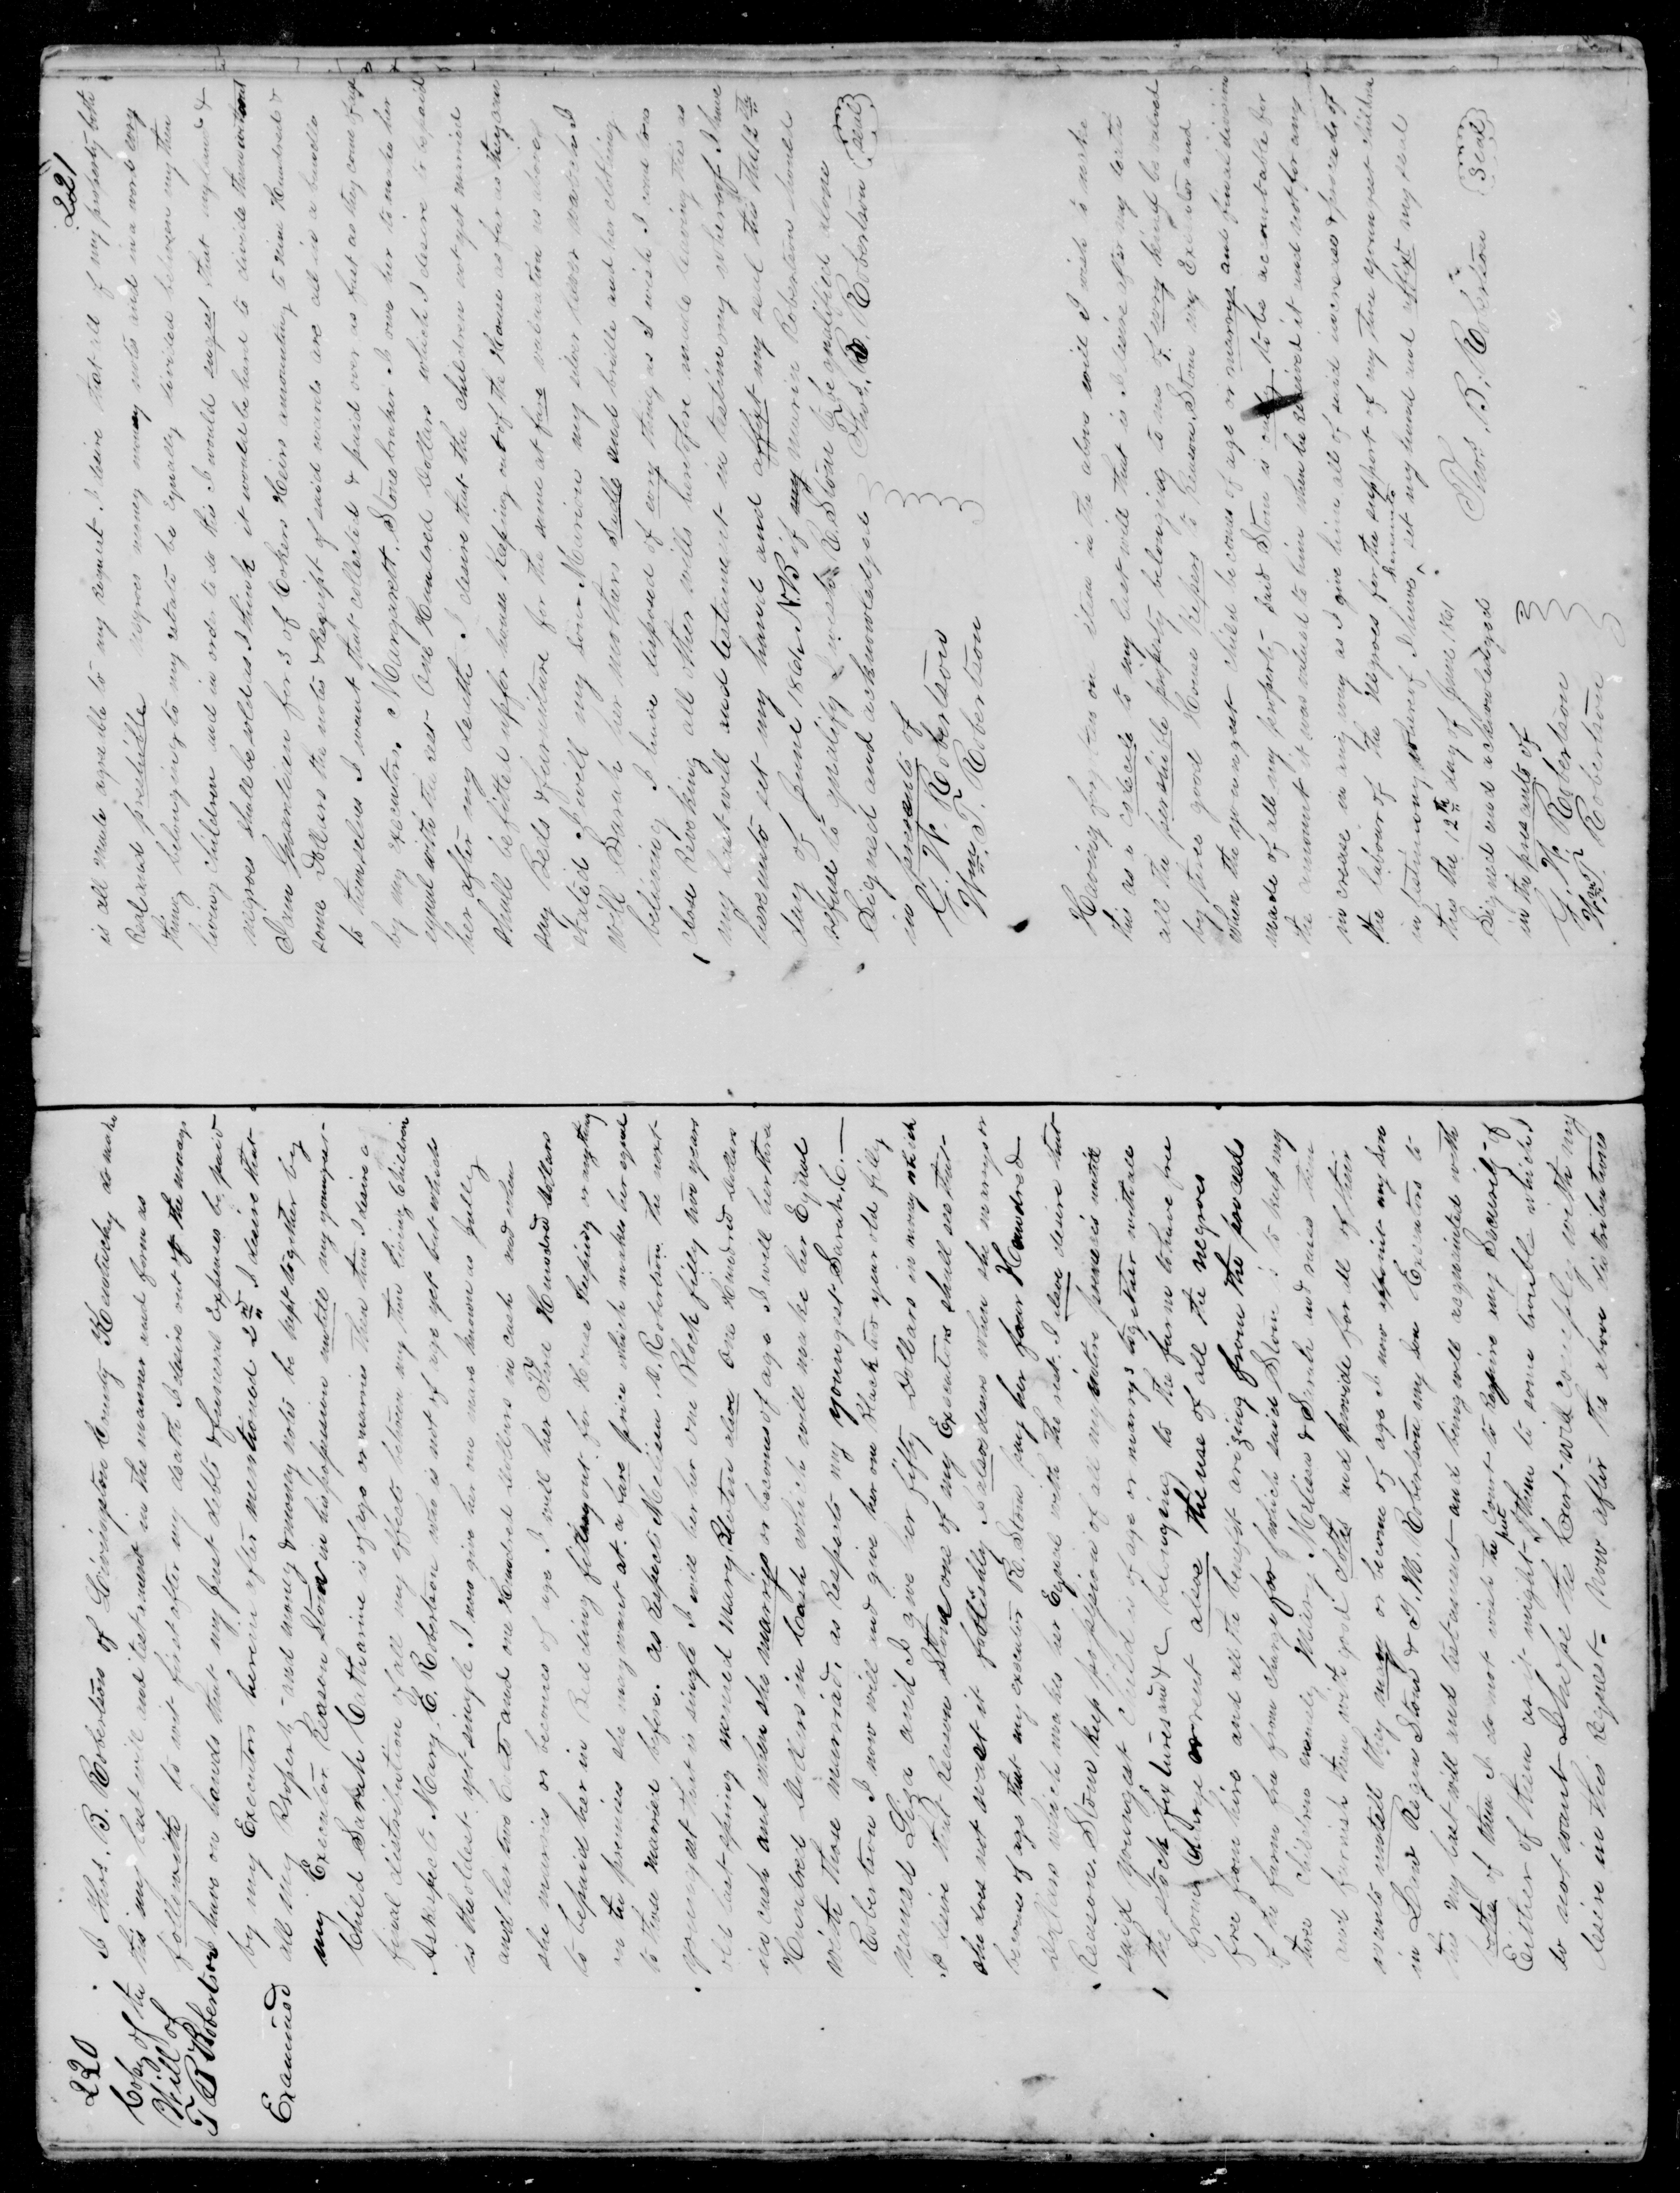 220
Coby of the
Will of
T B Robertson
Examined
I Thos. B. Robertson of Livingston County Kentucky do make
this my last will and testament in the manner and form as
followeth to wit first after my death I desire out of the money
have on hands that my Just debts & funeral Expenses be paid
by my Executor herein after mentioned 2nd I desire that
all my Property and money & money notes be kept together by
my Executor Reason Stone in his possession untill my younger
Child Sarah Catharine is of age or marries then thin I desire a
final distribution of all my effects between my then living Children
As respects Mary E. Robertson who is not of age yet but which
is the oldest yet single I now give her one mare known as Julley
and her two Colts and one Hundred Dollars in cash and when
she marries or becomes of age I will her Five Hundred dollars
to be paid her in Bedding fitting out for House Keeping or any thing
on the premises she may want at a fare price which makes her equal
to those married before. as respects Melissa A. Robertson the next
youngest that is single I will her one Black filly two years
old last spring named Mary Bluton alsoe One Hundred dollars
in cash and when she marrys or becomes of age I will her three
Hundred Dollars in Cash which will make her Equal
with those married, as Respects my youngest Sarah C.
Robertson I now will and give her one Black two year old filly
named Liza and I give her fifty Dollars in mony which
I desire that Reason Stone one of my Executors shall see that
she does not waist it foolishley I alsoe desire when she marrys or
becomes of age that my executor R. Stone pay her four Hundred
dollars which makes her Equal with the rest. I alsoe desire that
Reason Stone keep possession of all my entire premises untill
said youngest Child is of age or marrys together with all
the stock fixtures and C belonging to the farm to have free
from Charge or rent alsoe the use of all the negroes
free from hire and all the benefit arizing from the proceeds
of the farm free from charge for which said Stone is to keep my
three Children namely Mary, Melissa & Sarah and raise them
and furnish them with good Cloths and provide for all of their
wants untill they marry or become of age I now appoint my Son
in Law Reason Stone & T. M. Robertson my Son Executors to
this my last will and testament and being well acquainted with
bothe of them I do not wish the Court to Require any Security of
Either of them as it might put them to some trouble which I
do not want I hope the Court will Comply with my
desire in this Request. Now after the above distributions
221
is all made agreable to my request. I desire that all of my property both
Real and preshible negroes money money notes and in a word evry
thing belonging to my estate to be Equally divided between my then
living Children and in order to do this I would sugest that my land &
negroes shall be sold as I think it would be hard to divide them without
I am Guardian for 3 of Cokers Heirs amounting to nine Hundred &
some Dollars the notes & Receipt of said wards are all in a bundle
to themselves I want that collected & paid over as fast as they come of age
by my executors. Margarett Stonebraker I owe her to make her
equal with the rest One Hundred Dollars which I desire to be paid
her after my death. I desire that the children not yet married
shall be fitted up for house Keeping out of the House as far as they can
say Beds & furniture for the same at fare valuation as above
stated I will my Son Marion my silver lever watch I
will Sarah her mothers Saddle and bridle and her clothing
believing I have disposed of evry thing as I wish I conclude
these Revoking all other wills heretofore made leaving this as
my last will and testament in testimony whereof I have
hereunto set my hand and affixt my seal this the 12th
day of June 1861 N.B if my marion Robertson should
refuse to qualify I wish R. Stone to be qualified alone
Signed and acknowledged Thos. B. Robertson (Seal)
in presents of
G. W. Robertson
Wm. T. Robertson
Having forgotten on item in the above will I wish to make
this as a codecile to my last will that is I desire after my death
all the perishible property belonging to me of evry kind be valued
by three good House Keepers to Reason Stone my Executor and
when the youngest child becomes of age or marrys and final division
made of all my property said Stone is only to be accountable for
the amount it was valued to him when he received it and not for any
increase in any way as I give him all of said increase & proceeds of
the labour of the Negroes for the support of my three youngest children
in testimony whereof I have hereunto set my hand and affixt my seal
this the 12th day of June 1861
Signed and acknowledged Thos. B. Robertson (Seal)
in the presants of
G. W. Robertson
Wm. T. Robertson